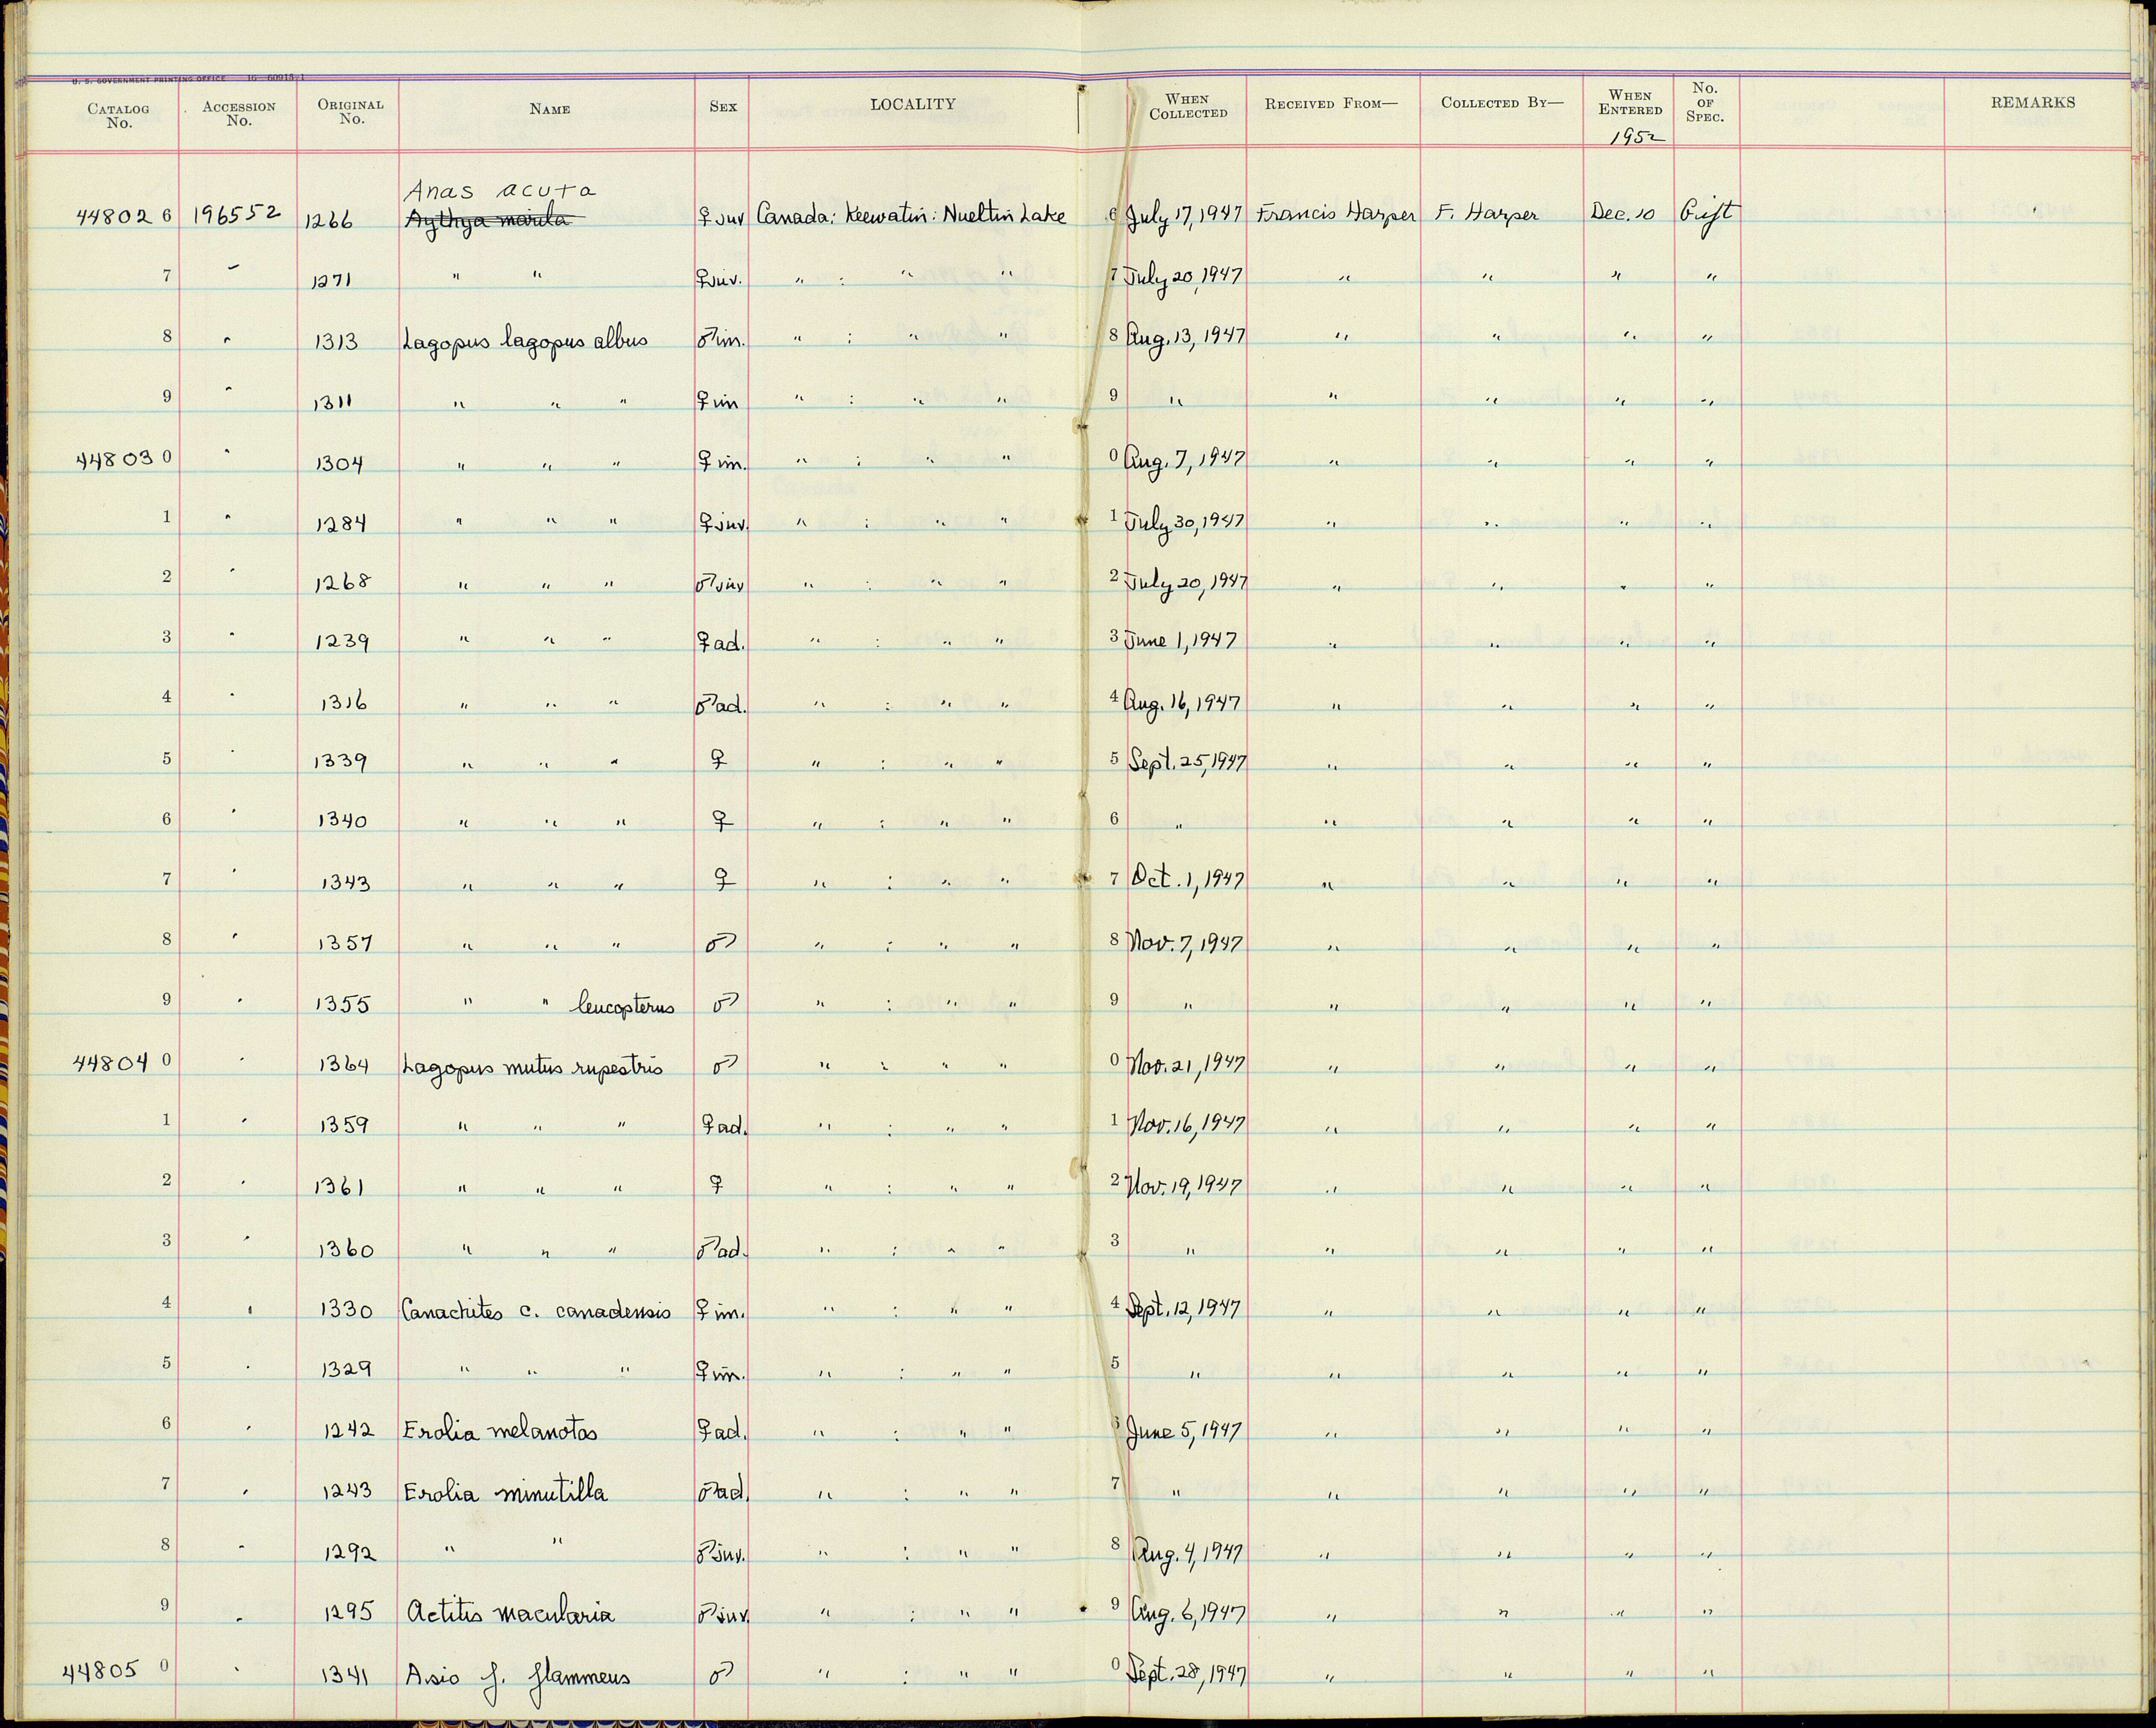 U. S. GOVERNMENT PRINTING OFFICE 16—60915-1
CATALOG No. ACCESSION No. ORIGINAL No. NAME SEX LOCALITY WHEN COLLECTED RECEIVED FROM— COLLECTED BY— WHEN ENTERED No. OF SPEC. REMARKS
1952
Anas acuta
44802 6 196552 1266 Aythya marila ♀ juv Canada: Keewatin: Nueltin Lake 6 July 17, 1947 Francis Harper F. Harper Dec. 10 Gift
7 " 1271 " " ♀ juv. " : " " 7 July 20, 1947 " " " "
8 " 1313 Lagopus lagopus albus ♂ im. " : " " 8 Aug. 13, 1947 " " " "
9 " 1311 " " " ♀ im " : " " 9 " " " " "
44803 0 " 1304 " " " ♀ im. " : " " 0 Aug. 7, 1947 " " " "
1 " 1284 " " " ♀ juv. " : " " 1 July 30, 1947 " " " "
2 " 1268 " " " ♂ juv " : " " 2 July 20, 1947 " " " "
3 " 1239 " " " ♀ ad. " : " " 3 June 1, 1947 " " " "
4 " 1316 " " " ♂ ad. " : " " 4 Aug. 16, 1947 " " " "
5 " 1339 " " " ♀ " : " " 5 Sept. 25, 1947 " " " "
6 " 1340 " " " ♀ " : " " 6 " " " " "
7 " 1343 " " " ♀ " : " " 7 Oct. 1, 1947 " " " "
8 " 1357 " " " ♂ " : " " 8 Nov. 7, 1947 " " " "
9 " 1355 " " leucopterus ♂ " : " " 9 " " " " "
44804 0 " 1364 Lagopus mutus rupestris ♂ " : " " 0 Nov. 21, 1947 " " " "
1 " 1359 " " " ♀ ad. " : " " 1 Nov. 16, 1947 " " " "
2 " 1361 " " " ♀ " : " " 2 Nov. 19, 1947 " " " "
3 " 1360 " " " ♂ ad. " : " " 3 " " " " "
4 " 1330 Canachites c. canadensis ♀ im. " : " " 4 Sept. 12, 1947 " " " "
5 " 1329 " " " ♀ im. " : " " 5 " " " " "
6 " 1242 Erolia melanotos ♀ ad. " : " " 6 June 5, 1947 " " " "
7 " 1243 Erolia minutilla ♂ ad. " : " " 7 " " " " "
8 " 1292 " " ♂ juv. " : " " 8 Aug. 4, 1947 " " " "
9 " 1295 Actitis macularia ♂ juv. " : " " 9 Aug. 6, 1947 " " " "
44805 0 " 1341 Asio f. flammeus ♂ " : " " 0 Sept. 28, 1947 " " " "